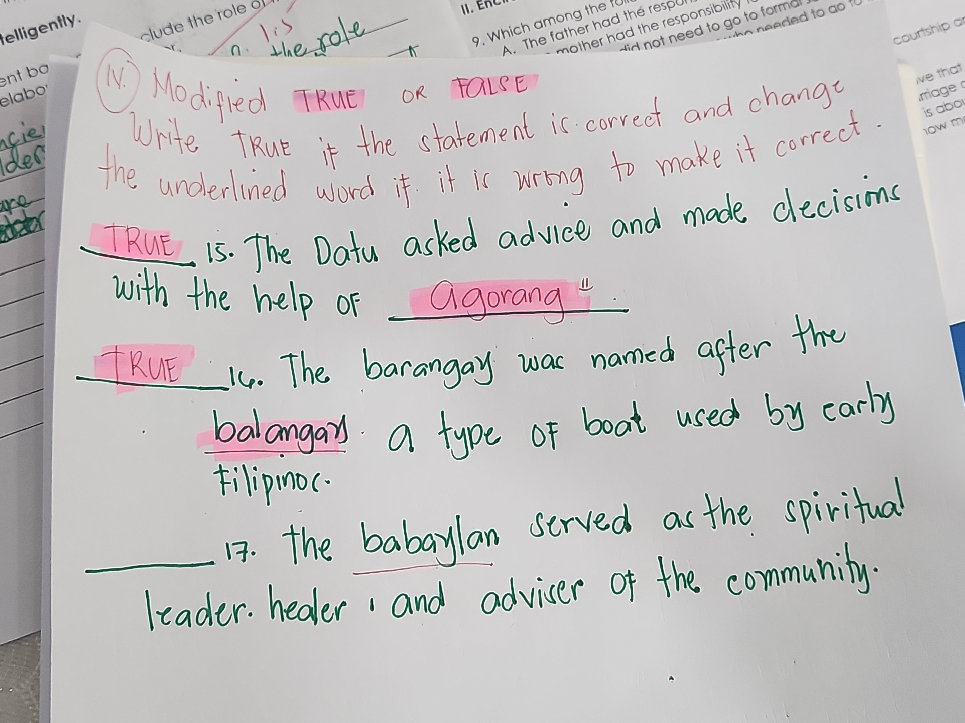 telligently.
clude the role of
1 is
n. the role
9. Which among the
A. The father had the
mother had the responsibility
did not need to go to formal
needed to go to
courtship
ent ba
elabo
ve that
is abou
IV. Modified TRUE OR FALSE
Write TRUE if the statement is correct and change
the underlined word if it is wrong to make it correct.
TRUE 15. The Datu asked advice and made decisions
with the help of agorang.
TRUE 16. The barangay was named after the
balangay. a type of boat used by early
Filipinos.
17. The babaylan served as the spiritual
leader. healer, and adviser of the community.